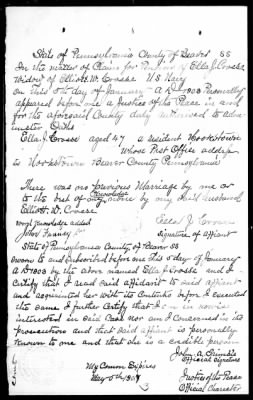 State of Pennsylvania County of Beaver SS
In the matter of Claim for Pension of Ella J Crosse
Widow of Elliott W. Crosse US Navy
on this 5th day of January A D 1903 Personally
appeared before me a Justice of the Peace in and
for the aforesaid County duly authorized to adm
inister Oaths
Ella J Crosse aged 47 a resident Hookstown
Whose Post Office address
is Hookstown Beaver County Pennsylvania
There was no previous Marriage by me or
Knowledge
to the best of my by my said Husband
Elliott W. Crosse
word Knowledge added
Ella J. Crosse
Signature of affiant
State of Pennsylvania County of Beaver SS
Sworn to and Subscribed before me this 5 day of January
A D 1903 by the above named Ella J Crosse and I
certify that I read said affidavit to said affiant
and acquainted her with its Contents before She executed
the same I further certify that I am in nowise
interested in said Case nor am I Concerned in its
prosecution and that said affiant is personally
known to me and that she is a credible person
John A.
official Signature
My Com Expires
May 5th
Justice of the Peace
Official Character